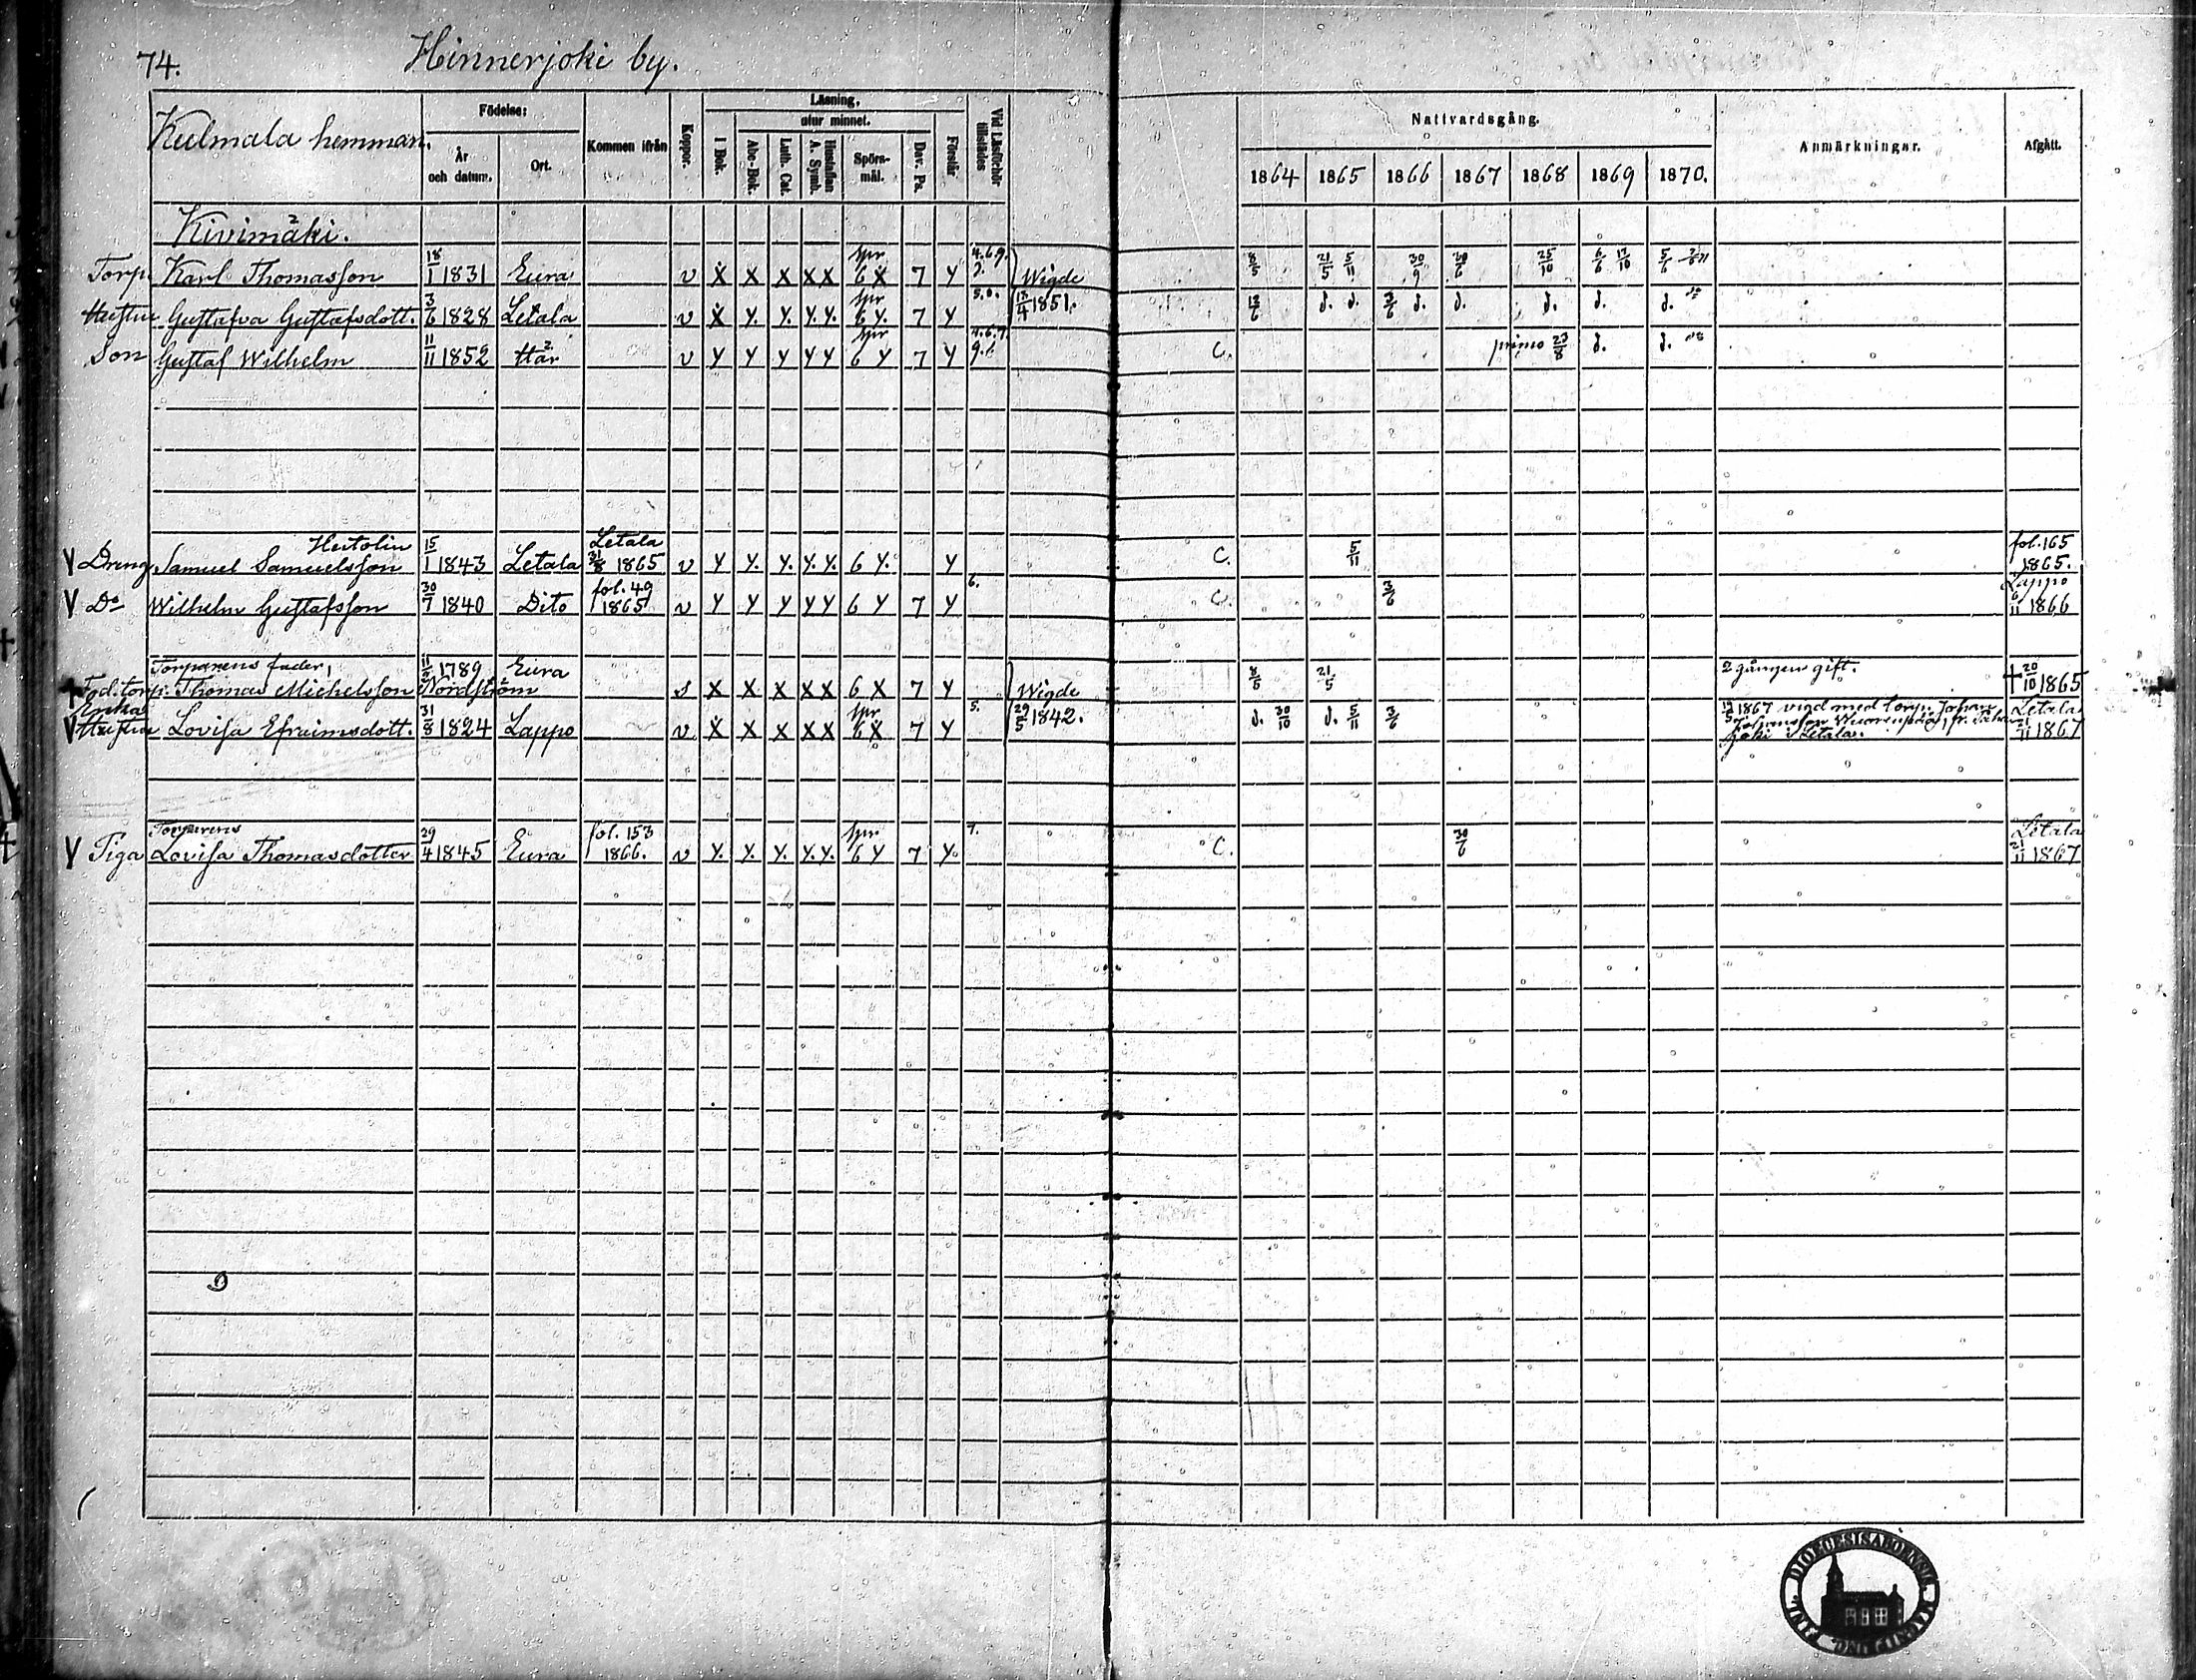 74. Hinnerjoki by.
Kulmala hemman.
Födelse:
År och datum.
Ort.
Kommen ifrån
Koppor.
Läsning,
utur minnet.
I Bok.
Abc-Bok.
Luth. Cat.
Hustaflan A. Symb.
Spörs-mål.
Dav. Ps.
Förstår
Vid Läsförhör tillstädes
Nattvardsgång.
1864 1865 1866 1867 1868 1869 1870.
Anmärkningar.
Afgått.
Kivimäki.
Torp. Karl Thomasson 18/1 1831 Eura v X X X X X spr 6 X 7 Y Wigde 8/5 21/5 5/11 30/9 30/6 25/10 6/6 17/10 5/6
Hustru Gustafva Gustafsdott. 3/6 1828 Letala v X Y. Y. Y. Y. spr 6 Y. 7 Y 13/4 1851. 12/6 d. d. 3/6 d. d. d. d. d.
Son Gustaf Wilhelm 11/11 1852 Här v Y Y Y Y Y spr 6 Y 7 Y C. primo 23/8 d. d.
Dreng Samuel Samuelsson 15/1 1843 Letala Letala 31/8 1865 v Y Y. Y. Y. Y. 6 Y. Y C. 5/11 fol. 165 1865.
Do Wilhelm Gustafsson 30/7 1840 Dito fol. 49 1865 v Y Y Y Y Y 6 Y 7 Y 6. C. 3/6 Lappo 6/11 1866
Torparens fader,
Thomas Michelsson Nordström 1789 Eura s X X X X X 6 X 7 Y Wigde 8/5 21/5 2 gången gift. † 20/10 1865
Enka
Hustru Lovisa Efraimsdott. 31/8 1824 Lappo v X X X X X spr 6 X 7 Y 5. 29/5 1842. d. 30/10 d. 5/11 3/6 1867 vigd med torp. Johan
joki i Letala. Letala 21/11 1867
Torparens
Piga Lovisa Thomasdotter 29/4 1845 Eura fol. 153 1866. v Y. Y. Y. Y. Y. spr 6 Y 7 Y. 7. C. 30/6 Letala 21/11 1867